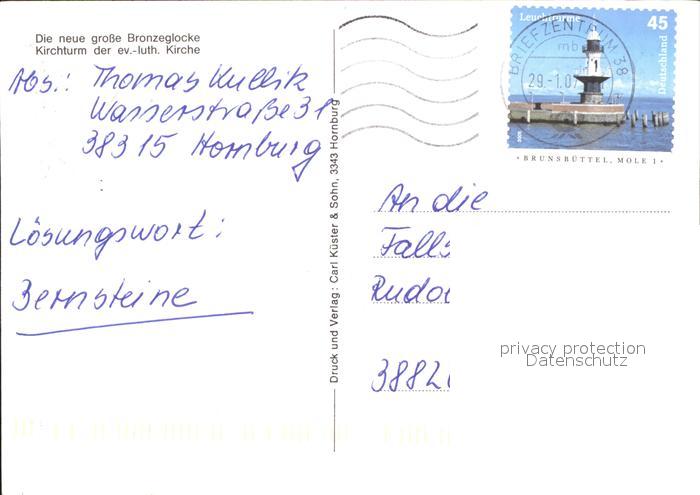 Die neue große Bronzeglocke
Kirchturm der ev.-luth. Kirche
Abs.: Thomas Kullik
Wasserstraße 31
38315 Hornburg
Lösungswort:
Bernsteine
Druck und Verlag: Carl Küster & Sohn, 3343 Hornburg
Leuchttürme
45
Deutschland
BRIEFZENTRUM 38
mb
29.-1.07
• BRUNSBÜTTEL, MOLE 1 •
An die
Falls
Rudo
3882
privacy protection
Datenschutz